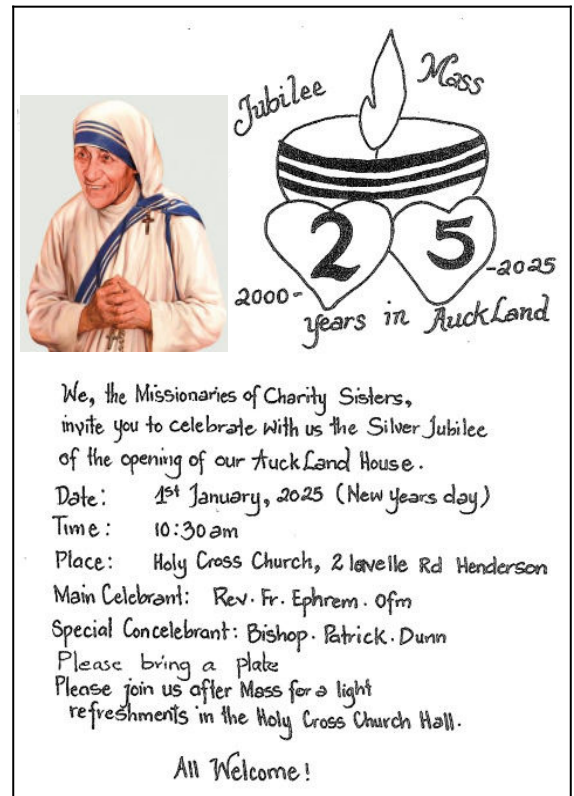 Jubilee Mass
25
2000- -2025
years in AuckLand
We, the Missionaries of Charity Sisters,
invite you to celebrate with us the Silver Jubilee
of the opening of our AuckLand House.
Date: 1st January, 2025 (New years day)
Time: 10:30am
Place: Holy Cross Church, 2 lavelle Rd Henderson
Main Celebrant: Rev. Fr. Ephrem. Ofm
Special Concelebrant: Bishop. Patrick. Dunn
Please bring a plate
Please join us after Mass for a light
refreshments in the Holy Cross Church Hall.
All Welcome!